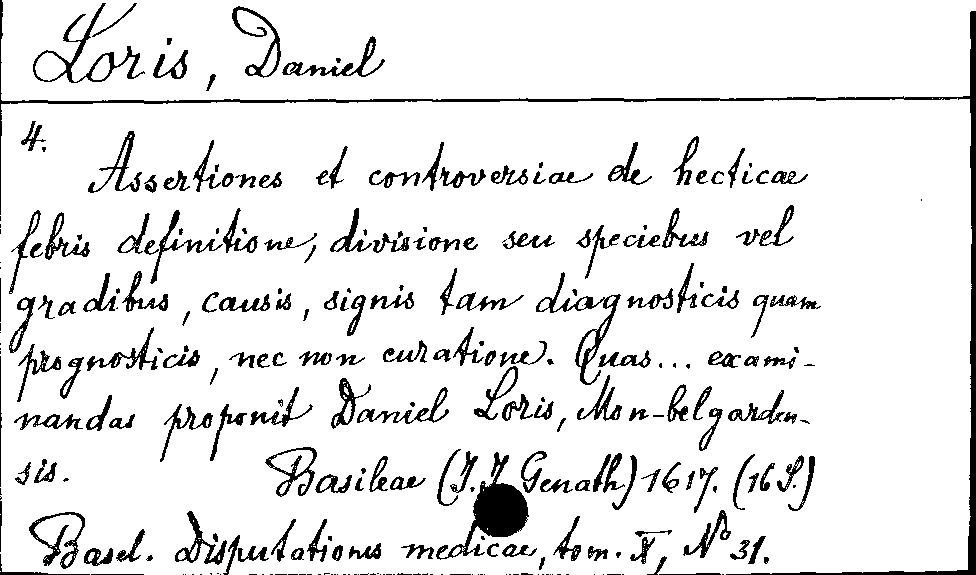 Loris, Daniel
4.
Assertiones et controversiae de hecticae
febris definitione, divisione seu speciebus vel
gradibus, causis, signis tam diagnosticis quam
prognosticis, nec non curatione. Quas... exami-
nandas proponit Daniel Loris, Mon-belgarden-
sis. Basileae (J.J Genath) 1617. (16 S.)
Basel. Disputationes medicae, tom. X, No 31.